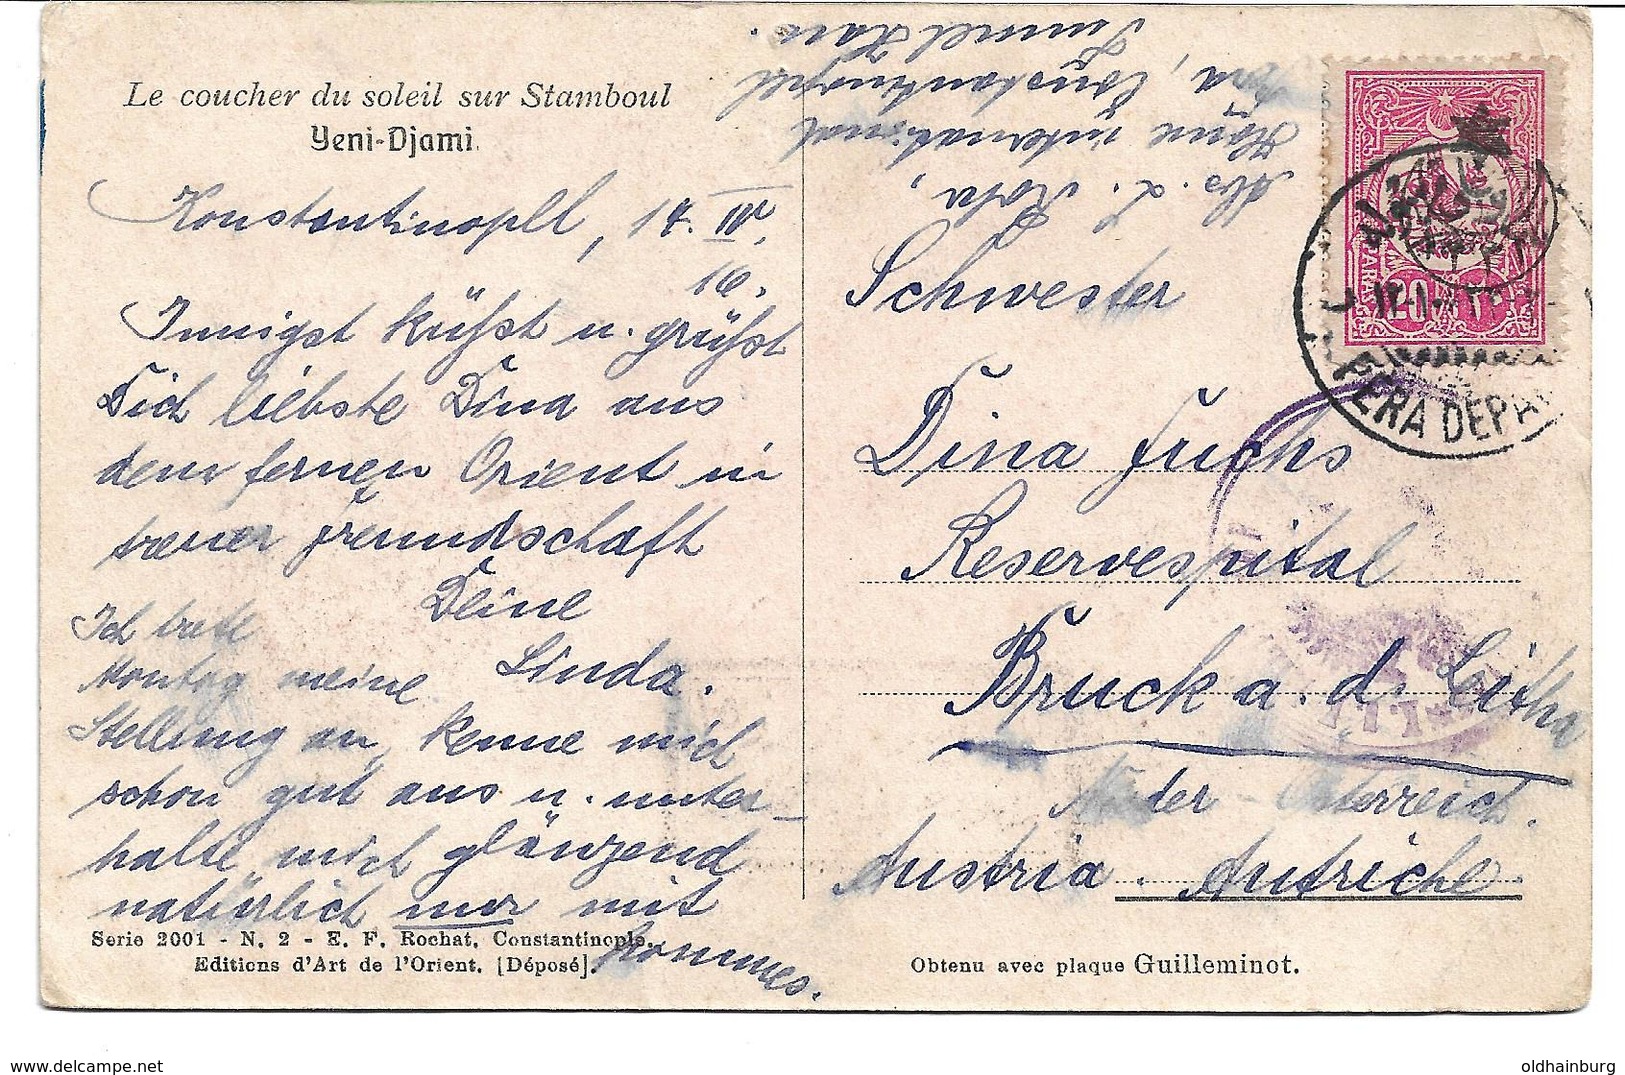 Le coucher du soleil sur Stamboul
Yeni-Djami.
Konstantinopel, 14. IV.
16.
Innigst küßt u. grüßt
Dich liebste Dina aus
dem fernen Orient in
treuer Freundschaft
Deine
Linda.
Ich trete
Montag meine
Stellung an, kenne mich
schon gut aus u. unter-
halte mich glänzend
natürlich nur mit
hommes.
Serie 2001 - N. 2 - E. F. Rochat, Constantinople.
Editions d'Art de l'Orient. [Déposé].
Abs. L. Rosa,
Home international
Pera, Constantinopel
Tunnel Han.
Schwester
Dina Fuchs
Reservespital
Bruck a. d. Leitha
Nieder-Österreich.
Austria. Autriche
Obtenu avec plaque Guilleminot.
20
PERA DEPA
oldhainburg